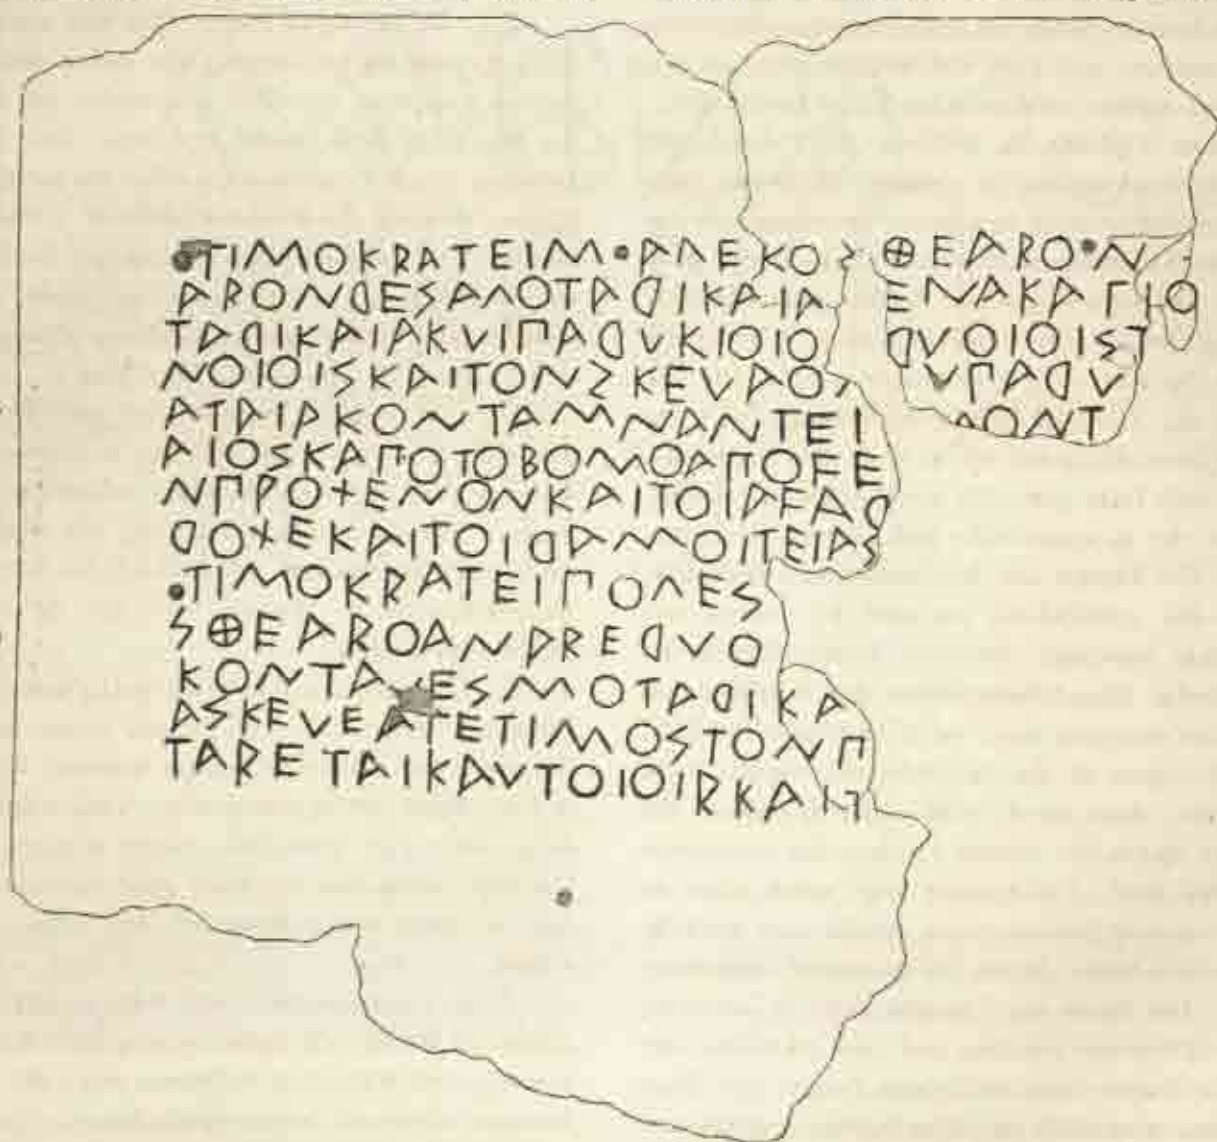 ΤΙΜΟΚΡΑΤΕΙΜ•ΑΛΕΚΟΣ ΘΕΑΡΟ•Ν
ΑΡΟΝΔΕΣΑΛΟΤΑΔΙΚΑΙΑ ΕΝΑΚΑΓΙΟ
ΤΑΔΙΚΑΙΑΚΥΙΠΑΔΥΚΙΟΙΟ ΔΥΟΙΟΙΣ
ΝΟΙΟΙΣΚΑΙΤΟΝΣΚΕΥΑΟΣ ΥΠΑΔΥ
ΑΤΡΙΑΚΟΝΤΑΜΝΑΝΤΕΙ ΛΟΝΤ
ΑΙΟΣΚΑΠΟΤΟΒΟΜΟΑΠΟΕΕ
ΝΠΡΟ+ΕΝΟΝΚΑΙΤΟΙΑΕΑΔ
ΔΟ+ΕΚΑΙΤΟΙΔΑΜΟΙΤΕΙΑΣ
•ΤΙΜΟΚΡΑΤΕΙΠΟΛΕΣ
ΣΘΕΑΡΟΑΝΔΡΕΔΥΟ
ΚΟΝΤΑ ΕΣΜΟΤΑΔΙΚΑ
ΑΣΚΕΥΕΑΤΕΤΙΜΟΣΤΟΝΠ
ΤΑΡΕΤΑΙΚΑΥΤΟΙΟΙΡΚΑΙΠ